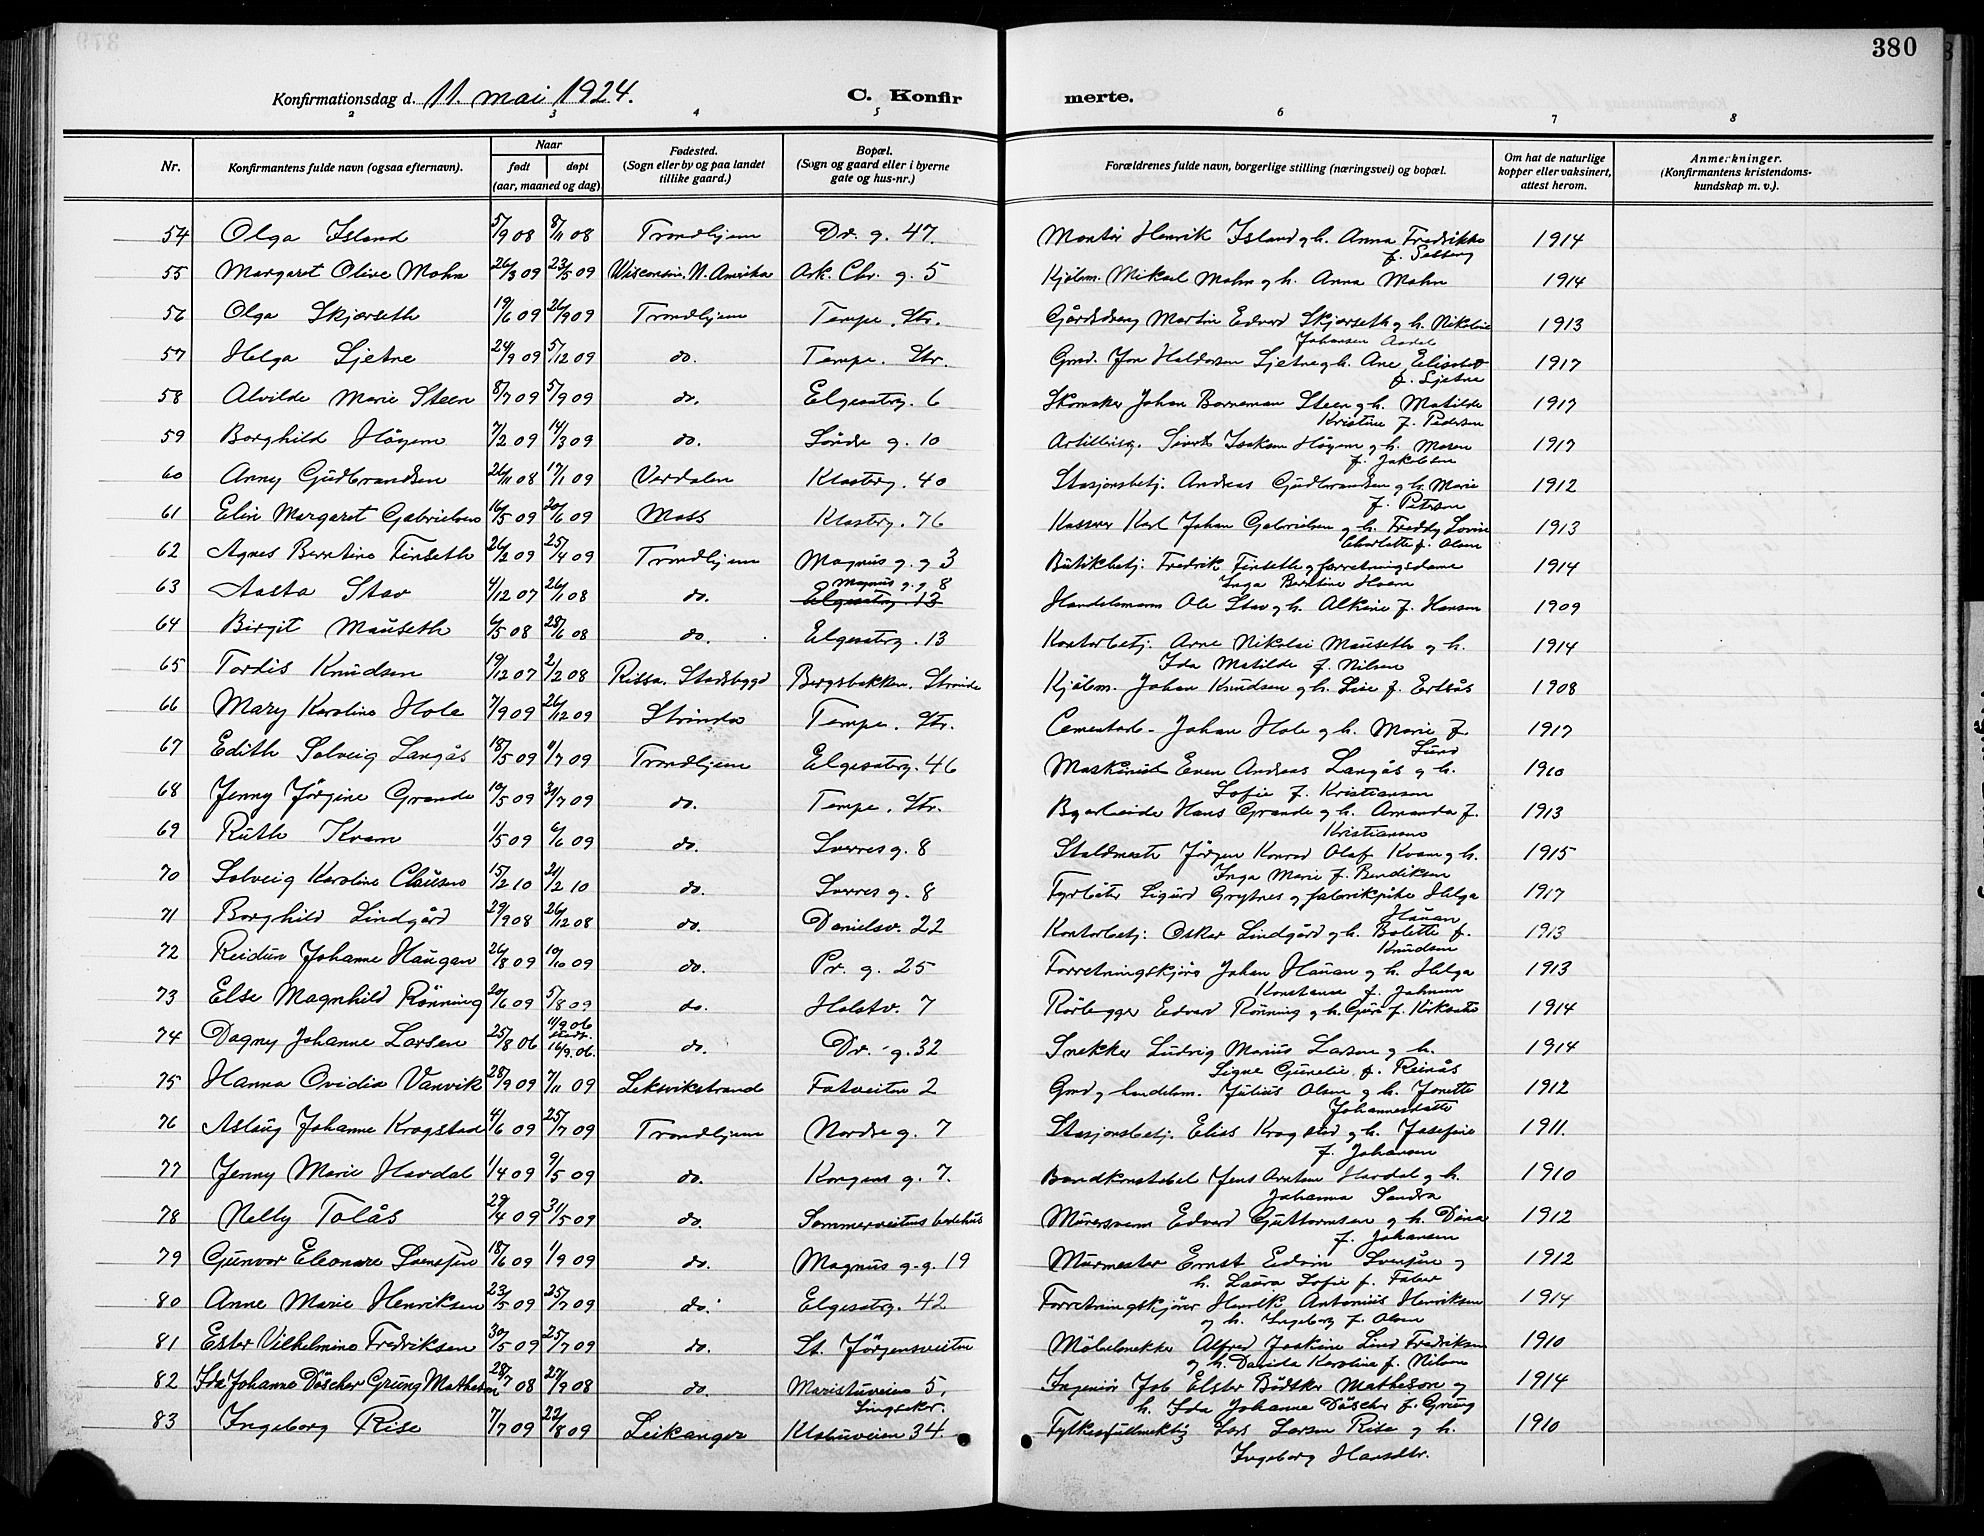 380
Konfirmationsdag d. 11. mai 1924. C. Konfirmerte.
2 3 4 5 6 7 8
Nr. Konfirmantens fulde navn (ogsaa efternavn). Naar født døpt (aar, maaned og dag) Fødested. (Sogn eller by og paa landet tillike gaard.) Bopæl. (Sogn og gaard eller i byerne gate og hus-nr.) Forældrenes fulde navn, borgerlige stilling (næringsvei) og bopæl. Om hat de naturlige kopper eller vaksinert, attest herom. Anmerkninger. (Konfirmantens kristendomskundskap m. v.).
54 Olga Island 5/9 08 8/11 08 Trondhjem Dr. g. 47. Montör Henrik Island og h. Anna Fredrikke f. Solberg 1914
55 Margaret Olive Mohn 26/3 09 23/5 09 Wisconsin. N. Amerika Ark. Chr. g. 5 Kjölm. Mikael Mohn og h. Anna Mohn 1914
56 Olga Skjerseth 19/6 09 26/9 09 Trondhjem Tempe. Str. Martin Edvard Skjerseth og h. Nikoline Johansen 1913
57 Helga Sjetne 24/9 09 5/12 09 do. Tempe. Str. Gmd. Jon Haldorsen Sjetne og h. Ane Elisabet f. Sjetne 1917
58 Alvilde Marie Steen 8/7 09 5/9 09 do. Elgesetrg. 6 Johan Borneman Steen og h. Matilde Kristine f. Pedersen 1917
59 Borghild Höyem 7/2 09 14/3 09 do. Söndre g. 10 Sivert Isaksen Höyem og h. Maren f. Jakobsen 1917
60 Anny Gudbrandsen 26/11 08 17/1 09 Verdalen Klosterg. 40 Stasjonsbetj. Andreas Gudbrandsen og h. Marie f. Petersen 1912
61 Elin Margaret Gabrielsen 16/5 09 20/6 09 Moss Klosterg. 76 Kasserer Karl Johan Gabrielsen og h. Freddy Lovise Charlotte f. Olsen 1913
62 Agnes Berntine Finseth 26/2 09 25/4 09 Trondhjem Magnus g. g. 3 Butikbetj. Fredrik Finseth og forretningsdame Inga Berntine Hoem 1914
63 Aasta Stav 4/12 07 26/1 08 do. Magnus g. g. 8 Elgesetrg. 13 Handelsmann Ole Stav og h. Alkine f. Hansen 1909
64 Birgit Mauseth 6/5 08 28/6 08 do. Elgesetrg. 13 Kontorbetj. Arne Nikolai Mauseth og h. Ida Matilde f. Nilsen 1914
65 Tordis Knudsen 19/12 07 2/2 08 Rissa. Stadsbygd Bergsbakken. Strinda Kjölm. Johan Knudsen og h. Lise f. Ertsås 1908
66 Mary Karoline Hole 7/9 09 26/12 09 Strinda Tempe. Str. Cementarb. Johan Hole og h. Marie f. Lund 1917
67 Edith Solveig Langås 18/5 09 4/7 09 Trondhjem Elgesetrg. 46 Maskinist Even Andreas Langås og h. Sofie f. Kristiansen 1910
68 Jenny Jörgine Grande 10/5 09 30/7 09 do. Tempe. Str. Byarbeider Hans Grande og h. Amanda f. Kristiansen 1913
69 Ruth Kvam 1/5 09 6/6 09 do. Sverres g. 8 Staldmester Jörgen Konrad Olaf Kvam og h. Inga Marie f. Bendiksen 1915
70 Solveig Karoline Clausen 15/2 10 21/2 10 do. Sverres g. 8 Fyrböter Sigurd Grytnes og fabrikpike Helga Hauan 1917
71 Borghild Lindgård 29/9 08 26/12 08 do. Danielsv. 22 Kontorbetj. Oskar Lindgård og h. Bolette f. Knudsen 1913
72 Reidun Johanne Haugan 26/8 09 10/10 09 do. Pr. g. 25 Forretningskjörer Johan Hauan og h. Helga Konstanse f. Johnsen 1913
73 Else Magnhild Rönning 20/6 09 5/8 09 do. Holstv. 7 Rörlegger Edvard Rönning og h. Guri f. Kirksæter 1914
74 Dagny Johanne Larsen 25/8 06 11/9 06 stadf. 16/9. 06. do. Dr. g. 32 Snekker Ludvig Marius Larsen og h. Signe Gunelie f. Reinås 1914
75 Hanna Ovidia Vanvik 28/9 09 7/11 09 Leksvikstrand Fotveiten 2 Gmd og handelsm. Julius Olsen og h. Jonette Johannesdatter 1912
76 Aslaug Johanne Krogstad 4/6 09 25/7 09 Trondhjem Nordre g. 7 Stasjonsbetj. Elias Krogstad og h. Josefine f. Johansen 1911.
77 Jenny Marie Hardal 1/4 09 9/5 09 do. Kongens g. 7. Brandkonstabel Jens Arntsen Hardal og h. Johanna Sandra 1910
78 Nelly Tolås 29/4 09 31/5 09 do. Sommerveitens bedehus Murersvenn Edvard Guttormsen og h. Dina f. Johansen 1912
79 Gunvor Eleonore Svensjen 18/6 09 1/9 09 do. Magnus g. g. 19 Murmester Ernst Edvin Svensjen og h. Laura Sofie f. Faber 1912
80 Anne Marie Henriksen 23/5 09 25/7 09 do. Elgesetrg. 42 Forretningskjörer Henrik Antonius Henriksen og h. Ingeborg f. Olsen 1914
81 Ester Vilhelmine Fredriksen 30/5 09 25/7 09 do. St. Jörgensveiten Möbelsnekker Alfred Joakim Lind Fredriksen og h. Davida Karoline f. Nilsen 1910
82 Ida Johanne Döscher Grung Matheson 28/7 08 27/9 08 do. Maristuveien 5, Singsaker. Ingeniör Job Elster Bödtker Matheson og h. Ida Johanne Döscher f. Grung 1914
83 Ingeborg Rise 7/7 09 22/8 09 Leikanger Klæbuveien 34. Fylkesfullmektig Lars Larsen Rise og h. Ingeborg Hansdtr. 1910